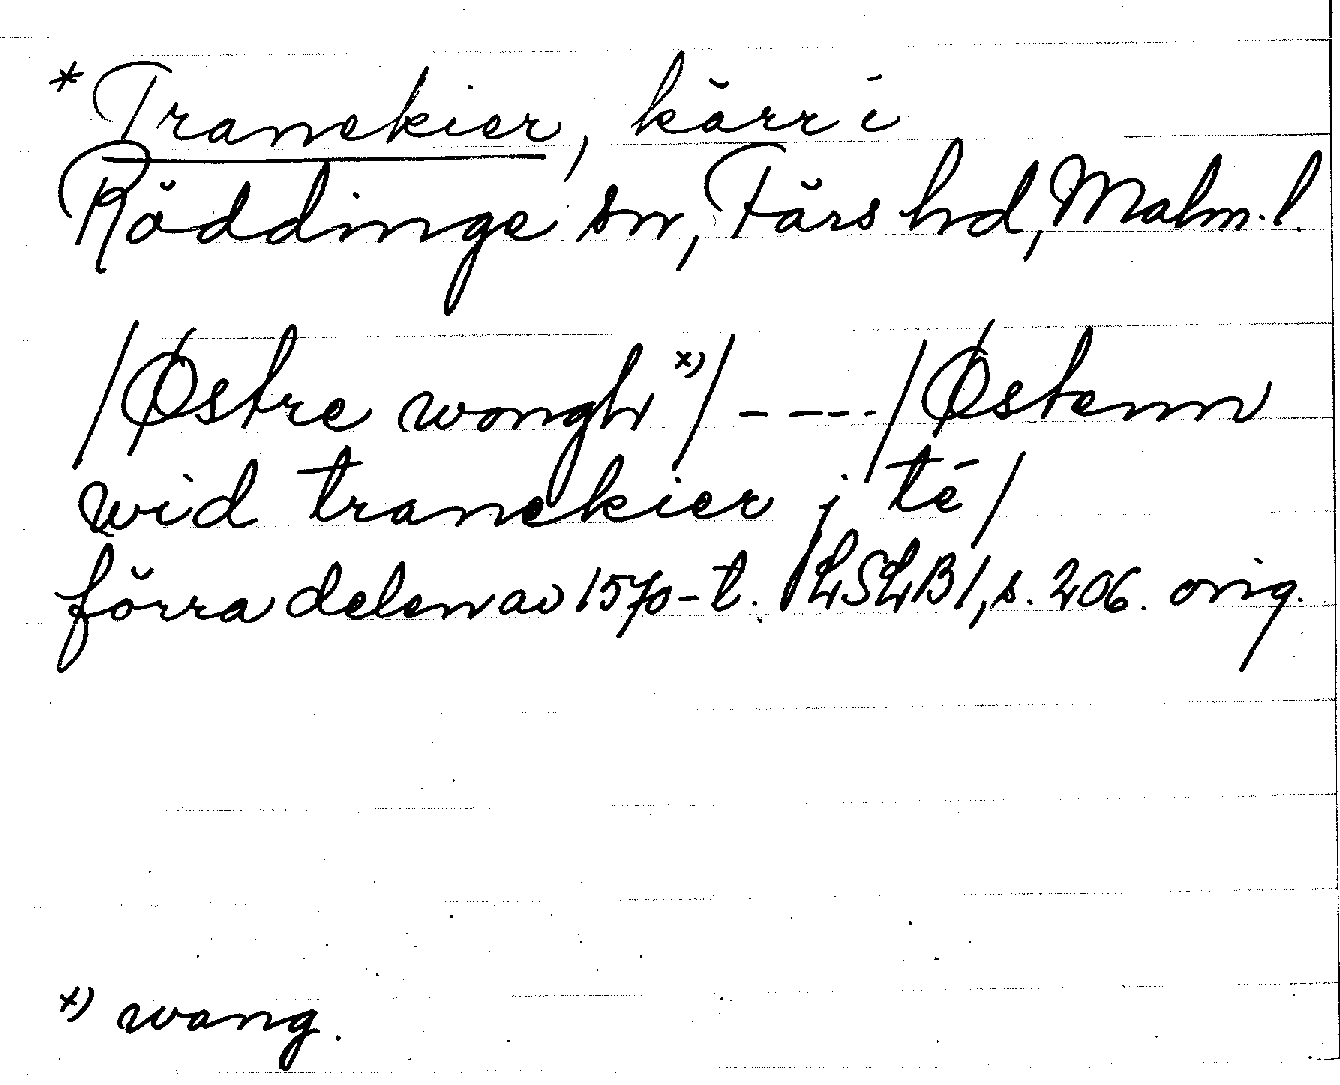 * Tranekier, kärr i
Röddinge sn, Färs hd, Malm. l.
/Østre wongh x)/ - --- /Østenn
wid tranekier j té/
förra delen av 1570-t. LSLB1, s. 206. orig.
x) wang.